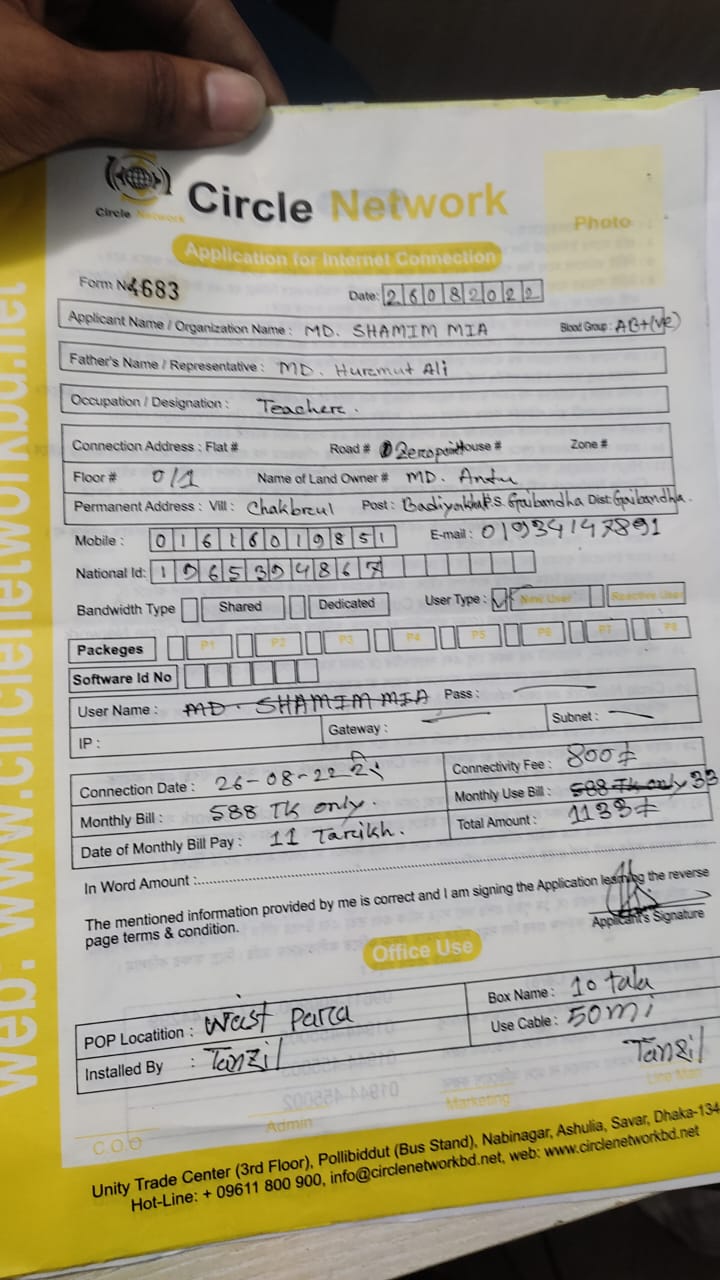 Circle Network
Circle Network
Photo
Application for Internet Connection
Form No 4683
Date: 26082022
Applicant Name / Organization Name : MD. SHAMIM MIA Blood Group : AB+(ve)
Father's Name / Representative : MD. Huremut Ali
Occupation / Designation : Teacherc.
Connection Address : Flat # Road # Zeropoint House # Zone #
Floor # 0/1 Name of Land Owner # MD. Antu
Permanent Address : Vill : Chakbreul Post : P.S. Gaibandha Dist: Gaibandha.
Mobile : 01616019851 E-mail : 01934147891
National Id: 1965394867
Bandwidth Type Shared Dedicated User Type : New User Reactive User
Packeges P1 P2 P3 P4 P5 P6 P7 P8
Software Id No
User Name : MD. SHAMIM MIA Pass :
IP : Gateway : Subnet :
Connection Date : 26-08-22 Connectivity Fee : 800৳
Monthly Bill : 588 TK only. Monthly Use Bill : 588 TK only 33
Date of Monthly Bill Pay : 11 Tarikh. Total Amount : 1133৳
In Word Amount :
The mentioned information provided by me is correct and I am signing the Application learning the reverse
page terms & condition.
Applicant's Signature
Office Use
POP Locatition : West Parca Box Name : 10 tala
Installed By : Tanzil Use Cable : 50mi
Tanzil
C.O.O Admin Marketing Line Man
Unity Trade Center (3rd Floor), Pollibiddut (Bus Stand), Nabinagar, Ashulia, Savar, Dhaka-134
Hot-Line: + 09611 800 900, info@circlenetworkbd.net, web: www.circlenetworkbd.net
web: www.circlenetworkbd.net